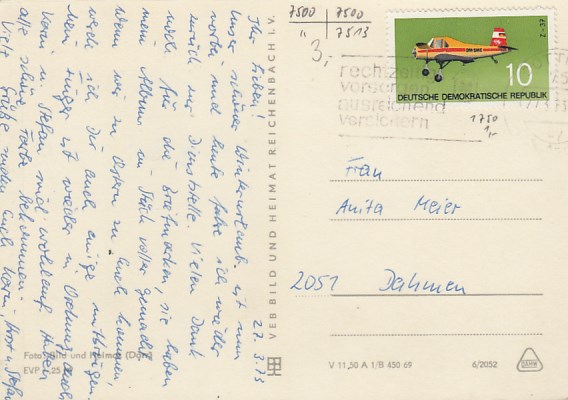 27.3.73
Ihr Lieben!
Unser schöner Winterurlaub ist nun
vorbei und heute fahre ich wieder
zurück zur Dienststelle. Vielen Dank
noch für die Briefmarken, sie haben
mein Album ein Stück voller gemacht.
Wenn wir zu Ostern zu Euch kommen,
werde ich Dir auch einige mitbringen.
Mein Finger ist wieder in Ordnung, auch
Karin u. Stefan sind wohlauf. Haben
alle schöne Farbe bekommen.
Viele Grüße senden Euch Karin, Horst u. Stefan
Foto: Bild und Heimat (Dörr)
EVP 25
VEB BILD UND HEIMAT REICHENBACH i.V.
7500 7500
" 7513
3,
rechtzeitig
vorsorgen
ausreichend
versichern
DM-SMC
Z-37
10
DEUTSCHE DEMOKRATISCHE REPUBLIK
1750
1,-
Frau
Anita Meier
2051 Dahmen
V 11,50 A 1/B 450 69
6/2052